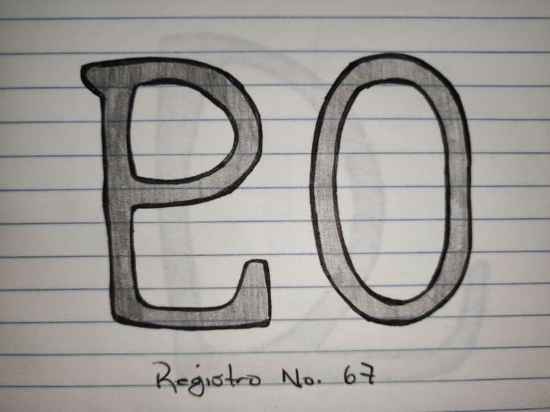 Registro No. 67